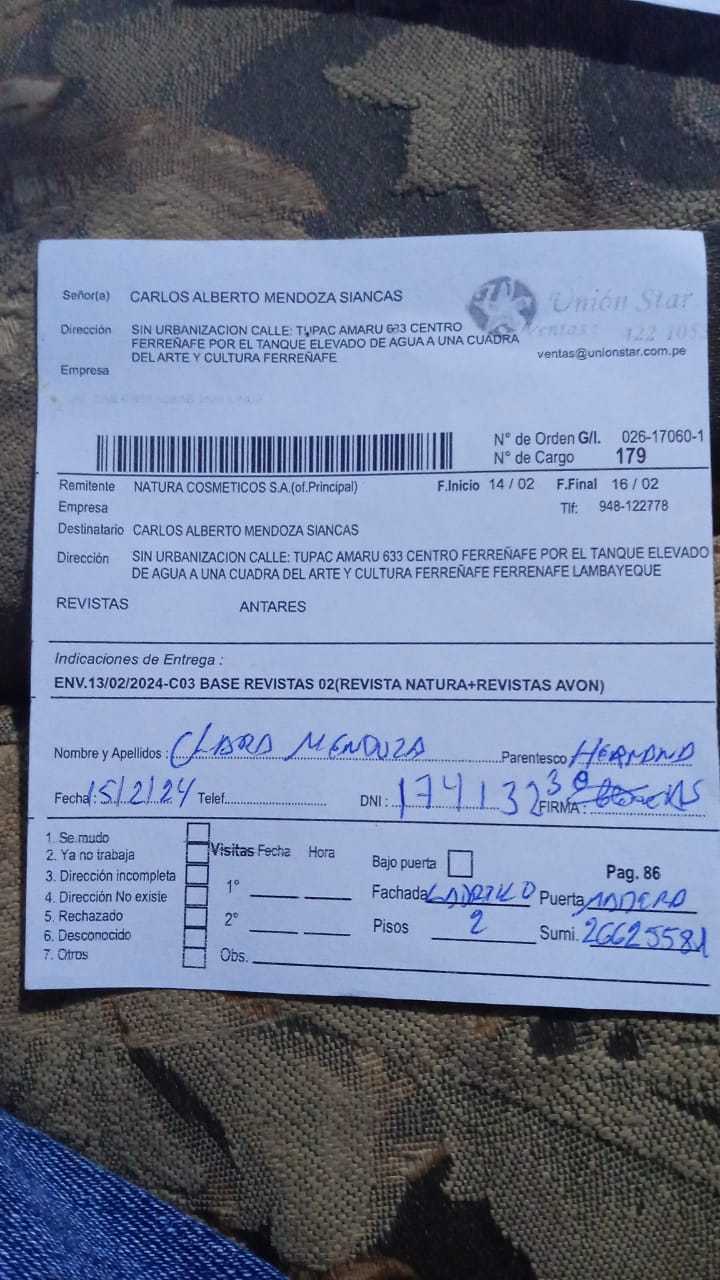 Señor(a) CARLOS ALBERTO MENDOZA SIANCAS
Unión Star
Dirección SIN URBANIZACION CALLE: TUPAC AMARU 633 CENTRO
FERREÑAFE POR EL TANQUE ELEVADO DE AGUA A UNA CUADRA
DEL ARTE Y CULTURA FERREÑAFE
Ventas: 422 1055
ventas@unionstar.com.pe
Empresa
N° de Orden G/I. 026-17060-1
N° de Cargo 179
Remitente NATURA COSMETICOS S.A.(of.Principal) F.Inicio 14 / 02 F.Final 16 / 02
Empresa Tlf: 948-122778
Destinatario CARLOS ALBERTO MENDOZA SIANCAS
Dirección SIN URBANIZACION CALLE: TUPAC AMARU 633 CENTRO FERREÑAFE POR EL TANQUE ELEVADO
DE AGUA A UNA CUADRA DEL ARTE Y CULTURA FERREÑAFE FERRENAFE LAMBAYEQUE
REVISTAS ANTARES
Indicaciones de Entrega :
ENV.13/02/2024-C03 BASE REVISTAS 02(REVISTA NATURA+REVISTAS AVON)
Nombre y Apellidos : CLARA MENDOZA Parentesco HERMANA
Fecha: 15/2/24 Telef. DNI : 174132 FIRMA :
1. Se mudo
2. Ya no trabaja
3. Dirección incompleta
4. Dirección No existe
5. Rechazado
6. Desconocido
7. Otros
Visitas Fecha Hora
1°
2°
Obs.
Bajo puerta Pag. 86
Fachada LADRILLO Puerta MADERA
Pisos 2 Sumi. 26625581